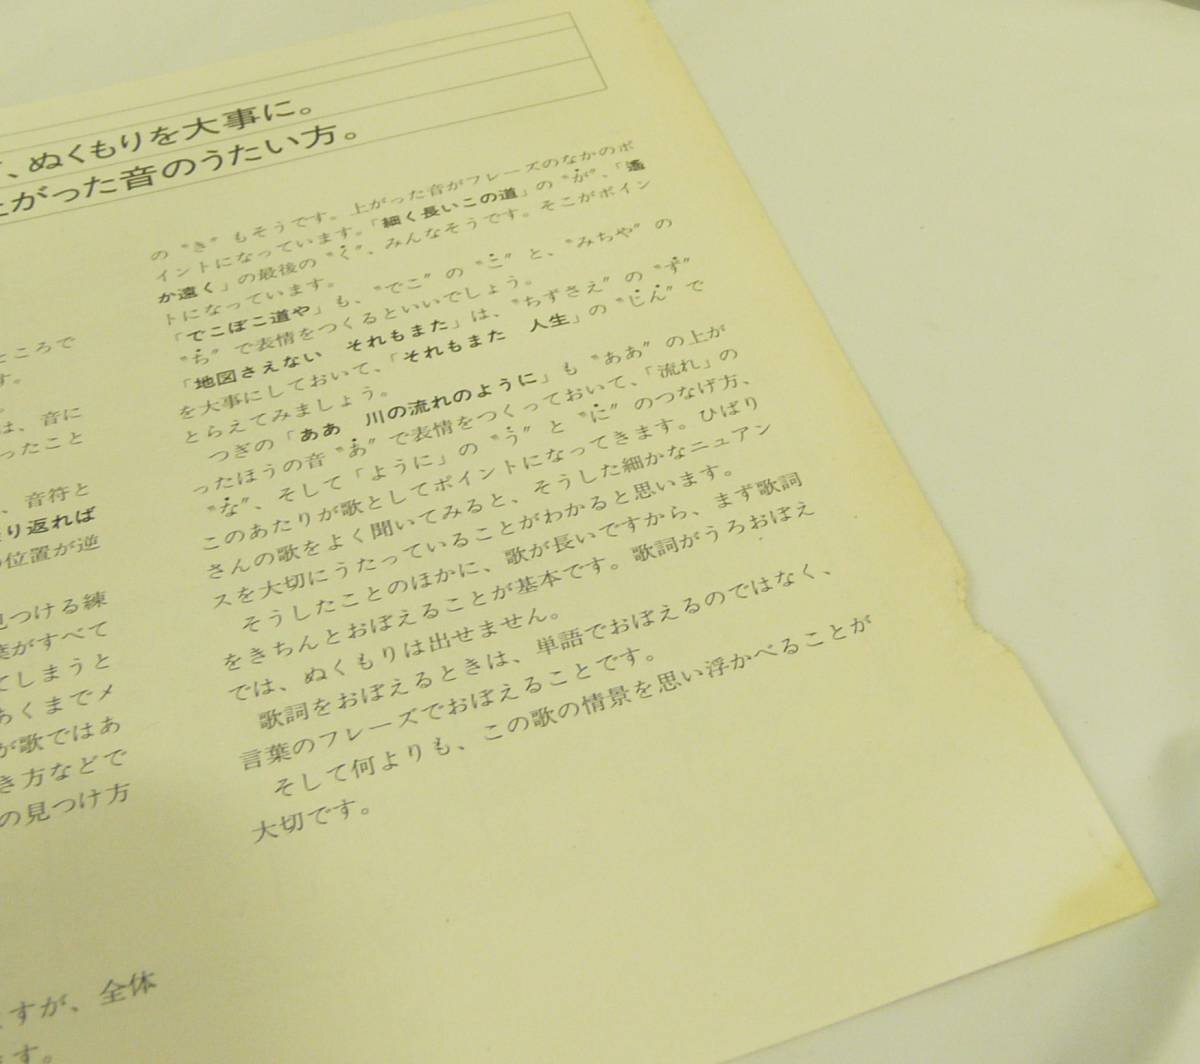 、ぬくもりを大事に。
がった音のうたい方。
ところで
す。
。
は、音に
ったこと
、音符と
り返れば
位置が逆
見つける練
葉がすべて
てしまうと
あくまでメ
が歌ではあ
き方などで
の見つけ方
ますが、全体
ます。
の〝き〟もそうです。上がった音がフレーズのなかのポ
イントになっています。「細く長いこの道」の〝が〟、「遥
か遠く」の最後の〝く〟、みんなそうです。そこがポイン
トになっています。
「でこぼこ道や」も、〝でこ〟の〝こ〟と、〝みちや〟の
〝ち〟で表情をつくるといいでしょう。
「地図さえない　それもまた」は、〝ちずさえ〟の〝ず〟
を大事にしておいて、「それもまた　人生」の〝じん〟で
とらえてみましょう。
つぎの「ああ　川の流れのように」も〝ああ〟の上が
ったほうの音〝あ〟で表情をつくっておいて、「流れ」の
〝な〟、そして「ように」の〝う〟と〝に〟のつなげ方、
このあたりが歌としてポイントになってきます。ひばり
さんの歌をよく聞いてみると、そうした細かなニュアン
スを大切にうたっていることがわかると思います。
そうしたことのほかに、歌が長いですから、まず歌詞
をきちんとおぼえることが基本です。歌詞がうろおぼえ
では、ぬくもりは出せません。
歌詞をおぼえるときは、単語でおぼえるのではなく、
言葉のフレーズでおぼえることです。
そして何よりも、この歌の情景を思い浮かべることが
大切です。